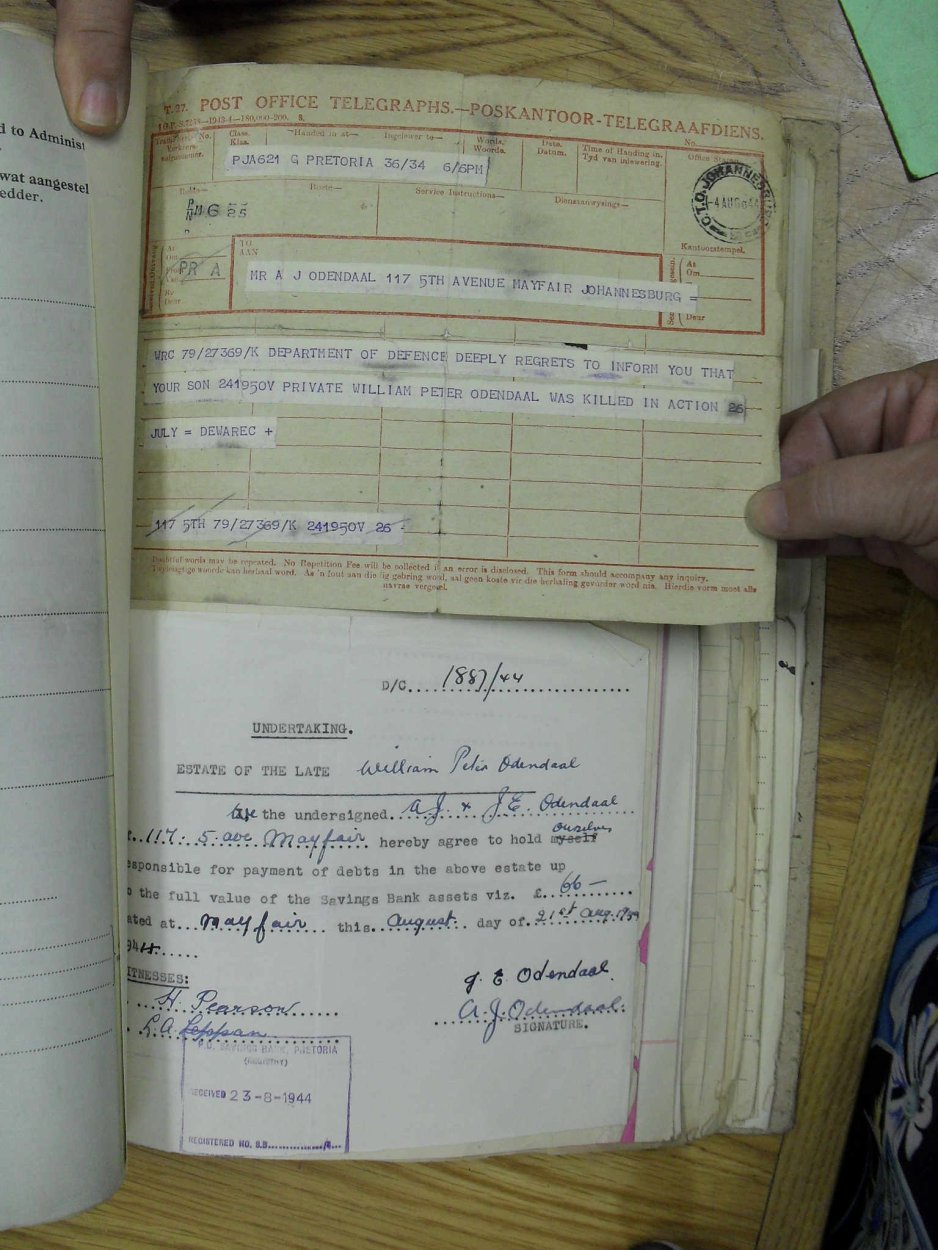 d to Administ
wat aangestel
edder.
T.27. POST OFFICE TELEGRAPHS.—POSKANTOOR-TELEGRAAFDIENS.
Class. Klas. —Handed in at— Ingelewer te— Words. Woorde. Date. Datum. Time of Handing in. Tyd van inlewering. No. Office Stamp.
PJA621 G PRETORIA 36/34 6/6PM
C.T.O. JOHANNESBURG
4 AUG 44
Route— Service Instructions— Diensaanwysings—
6 25
Kantoorstempel.
PR A
TO
AAN
At
Om
Deur
MR A J ODENDAAL 117 5TH AVENUE MAYFAIR JOHANNESBURG =
WRC 79/27369/K DEPARTMENT OF DEFENCE DEEPLY REGRETS TO INFORM YOU THAT
YOUR SON 241950V PRIVATE WILLIAM PETER ODENDAAL WAS KILLED IN ACTION 26
JULY = DEWAREC +
117 5TH 79/27369/K 241950V 26
Doubtful words may be repeated. No Repetition Fee will be collected if an error is disclosed. This form should accompany any inquiry.
Twyfelagtige woorde kan herhaal word. As 'n fout aan die lig gebring word, sal geen koste vir die herhaling gevorder word nie. Hierdie vorm moet alle
navrae vergesel.
D/C....1887/44
UNDERTAKING.
ESTATE OF THE LATE William Peter Odendaal
We the undersigned A.J. & J.E. Odendaal
117. 5 ave Mayfair hereby agree to hold myself ourselves
esponsible for payment of debts in the above estate up
o the full value of the Savings Bank assets viz. £ 66 —
ated at Mayfair this August day of 21st Aug.
944
ITNESSES:
J. E. Odendaal
H. Pearson
A.J. Odendaal
L.A. Leppan
SIGNATURE.
P.O. SAVINGS BANK, PRETORIA
(REGISTRY)
RECEIVED 23-8-1944
REGISTERED NO. S.B.